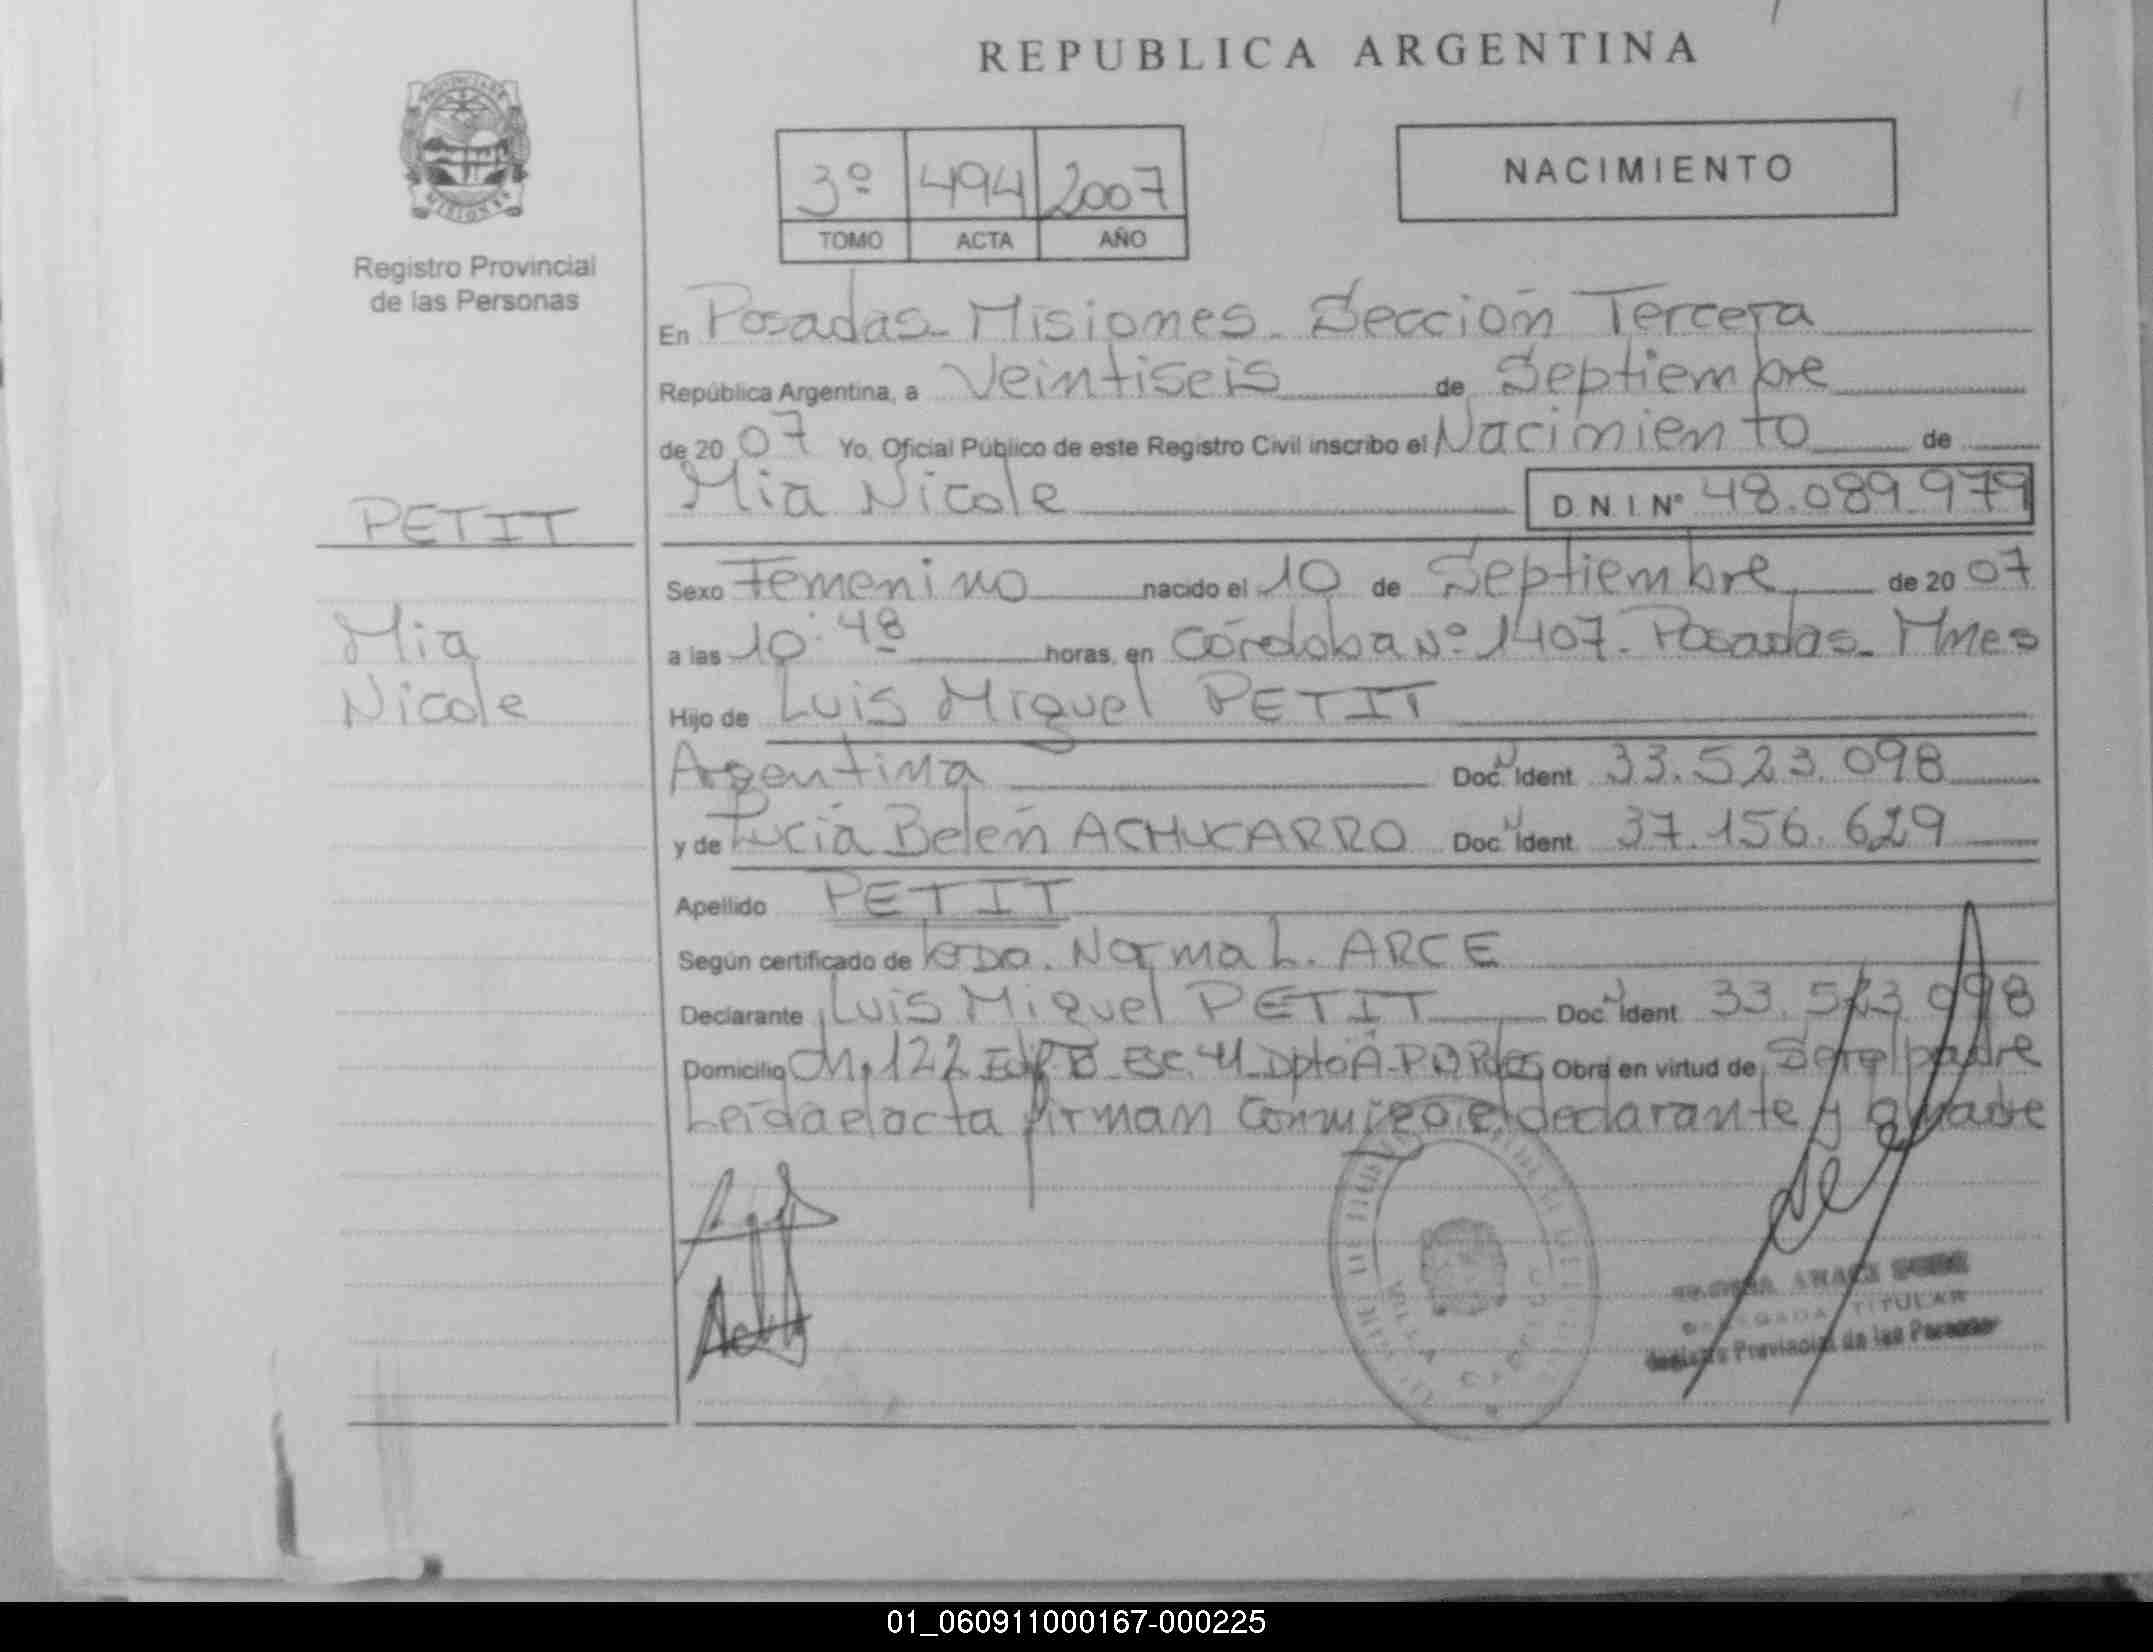 REPUBLICA ARGENTINA
PROVINCIA DE
MISIONES
Registro Provincial
de las Personas
3º 494 2007
TOMO ACTA AÑO
NACIMIENTO
En Posadas - Misiones - Sección Tercera
República Argentina, a Veintiseis de Septiembre
de 20 07 Yo, Oficial Público de este Registro Civil inscribo el Nacimiento de
Mia Nicole D.N.I. Nº 48.089.979
PETIT
Mia
Nicole
Sexo Femenino nacido el 10 de Septiembre de 20 07
a las 10:48 horas, en Córdoba Nº 1407 - Posadas - Mnes
Hijo de Luis Miguel PETIT
Argentina Doc. Ident. 33.523.098
y de Lucía Belén ACHUCARRO Doc. Ident. 37.156.629
Apellido PETIT
Según certificado de Norma L. ARCE
Declarante Luis Miguel PETIT Doc. Ident. 33.523.098
Domicilio Ch. 122 Esc. 41 Dpto A Obra en virtud de Ser el padre
Leída el acta firman conmigo el declarante y la madre
TITULAR
Registro Provincial de las Personas
01_060911000167-000225